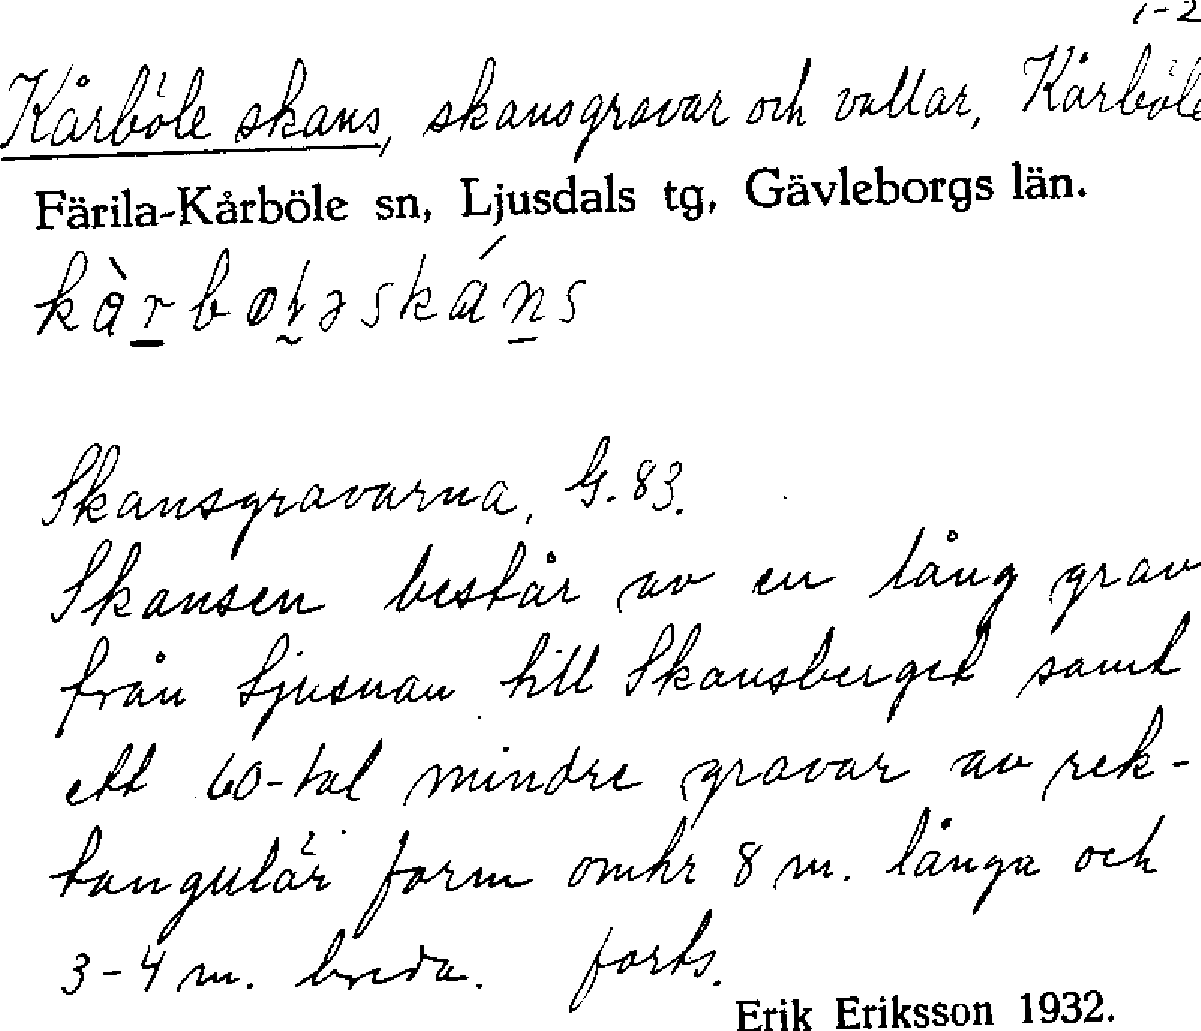 1-2
Kårböle skans, skansgravar och vallar, Kårböle
Färila-Kårböle sn, Ljusdals tg, Gävleborgs län.
Skansgravarna, G. 83.
Skansen består av en lång grav
från Ljusnan till Skansberget samt
ett 60-tal mindre gravar av rek-
tangulär form omkr 8 m. långa och
3-4 m. breda. forts.
Erik Eriksson 1932.